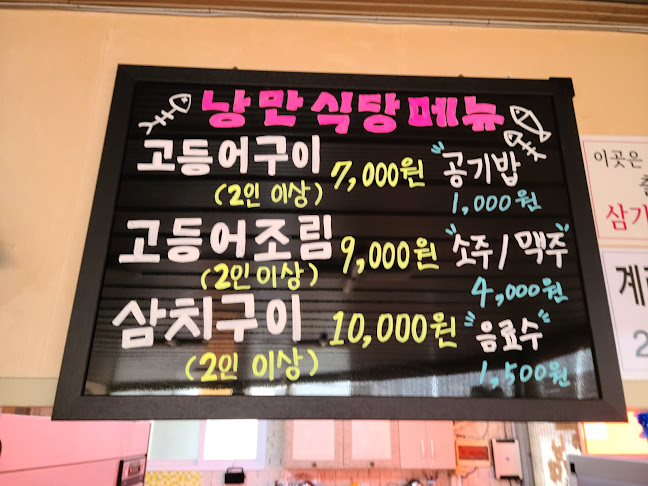 낭만식당메뉴
고등어구이 7,000원
(2인 이상)
고등어조림 9,000원
(2인 이상)
삼치구이 10,000원
(2인 이상)
"공기밥"
1,000원
"소주/맥주"
4,000원
"음료수"
1,500원
이곳은